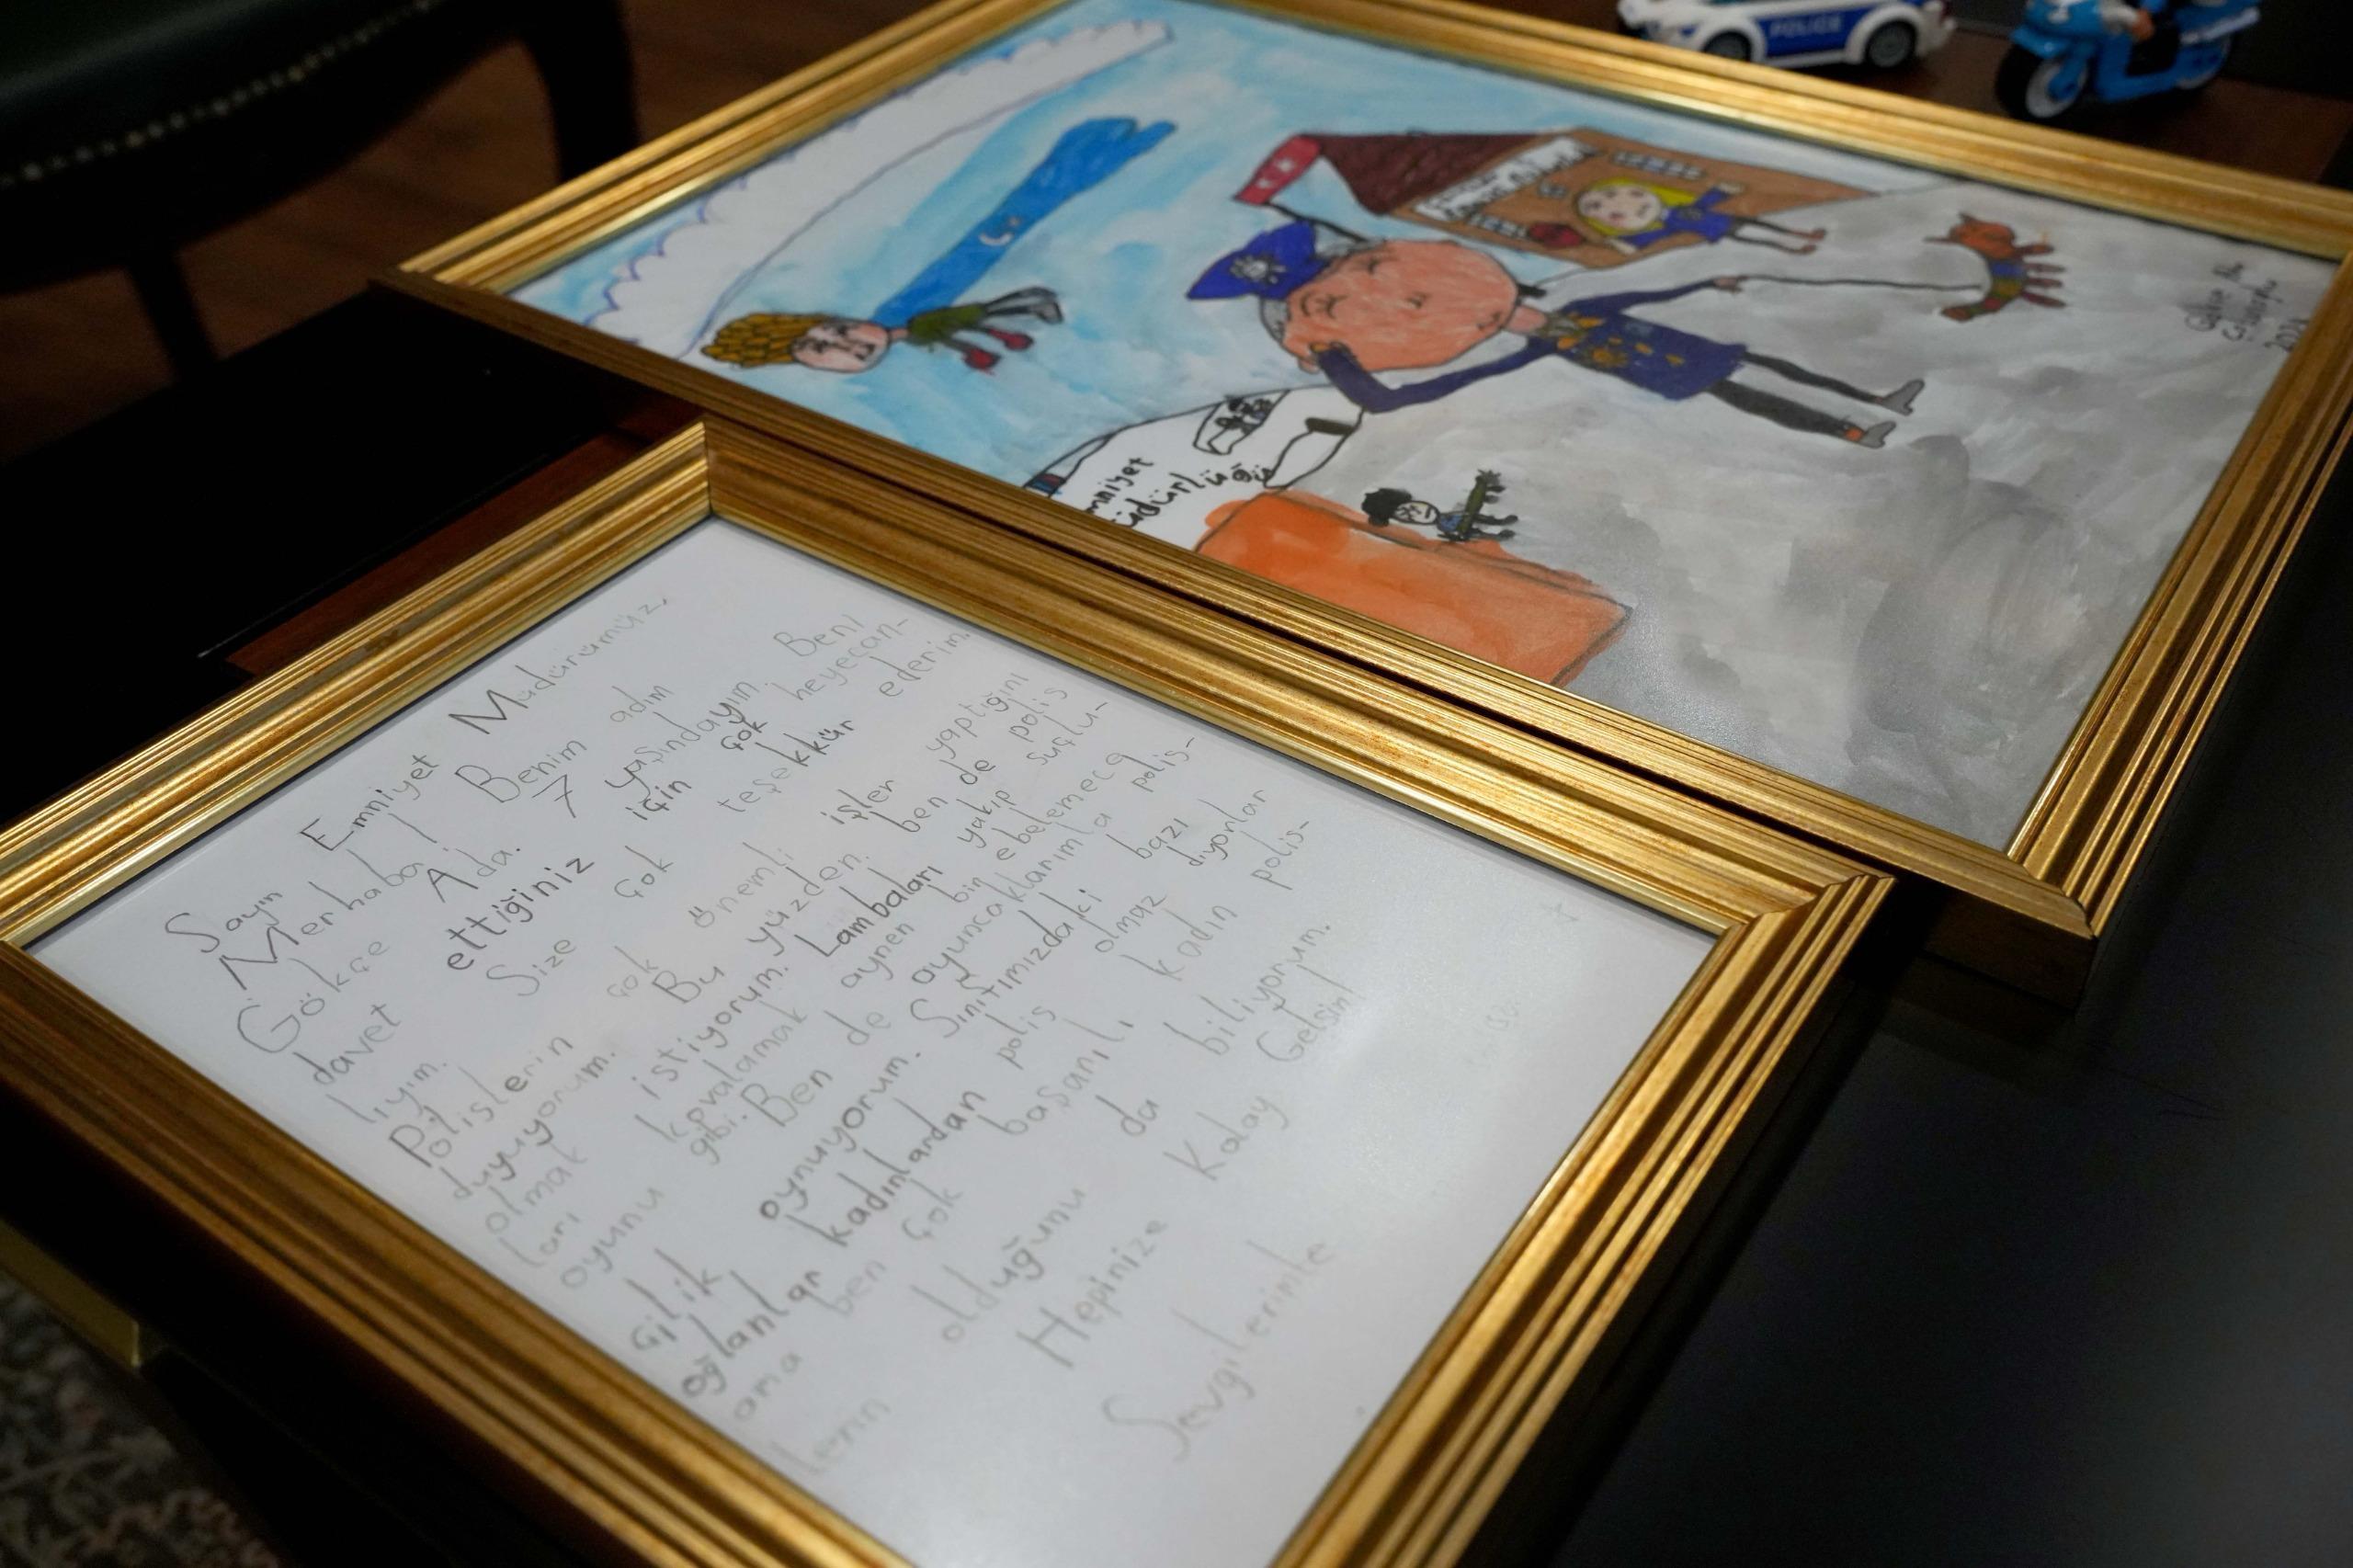 POLICE
Gökçe Ada
mniyet
üdürlüğü
Sayın Emniyet Müdürümüz,
Merhaba! Benim adım
Gökçe Ada. 7 yaşındayım. Beni
davet ettiğiniz için çok heyecan-
lıyım. Size çok teşekkür ederim.
Polislerin çok önemli işler yaptığını
duyuyorum. Bu yüzden ben de polis
olmak istiyorum. Lambaları yakıp suçlu-
ları kovalamak aynen bir ebelemece
oyunu gibi. Ben de oyuncaklarımla polis-
çilik oynuyorum. Sınıfımızdaki bazı
oğlanlar kadınlardan polis olmaz diyorlar
ama ben çok başarılı kadın polis-
lerin olduğunu da biliyorum.
Hepinize Kolay Gelsin!
Sevgilerimle